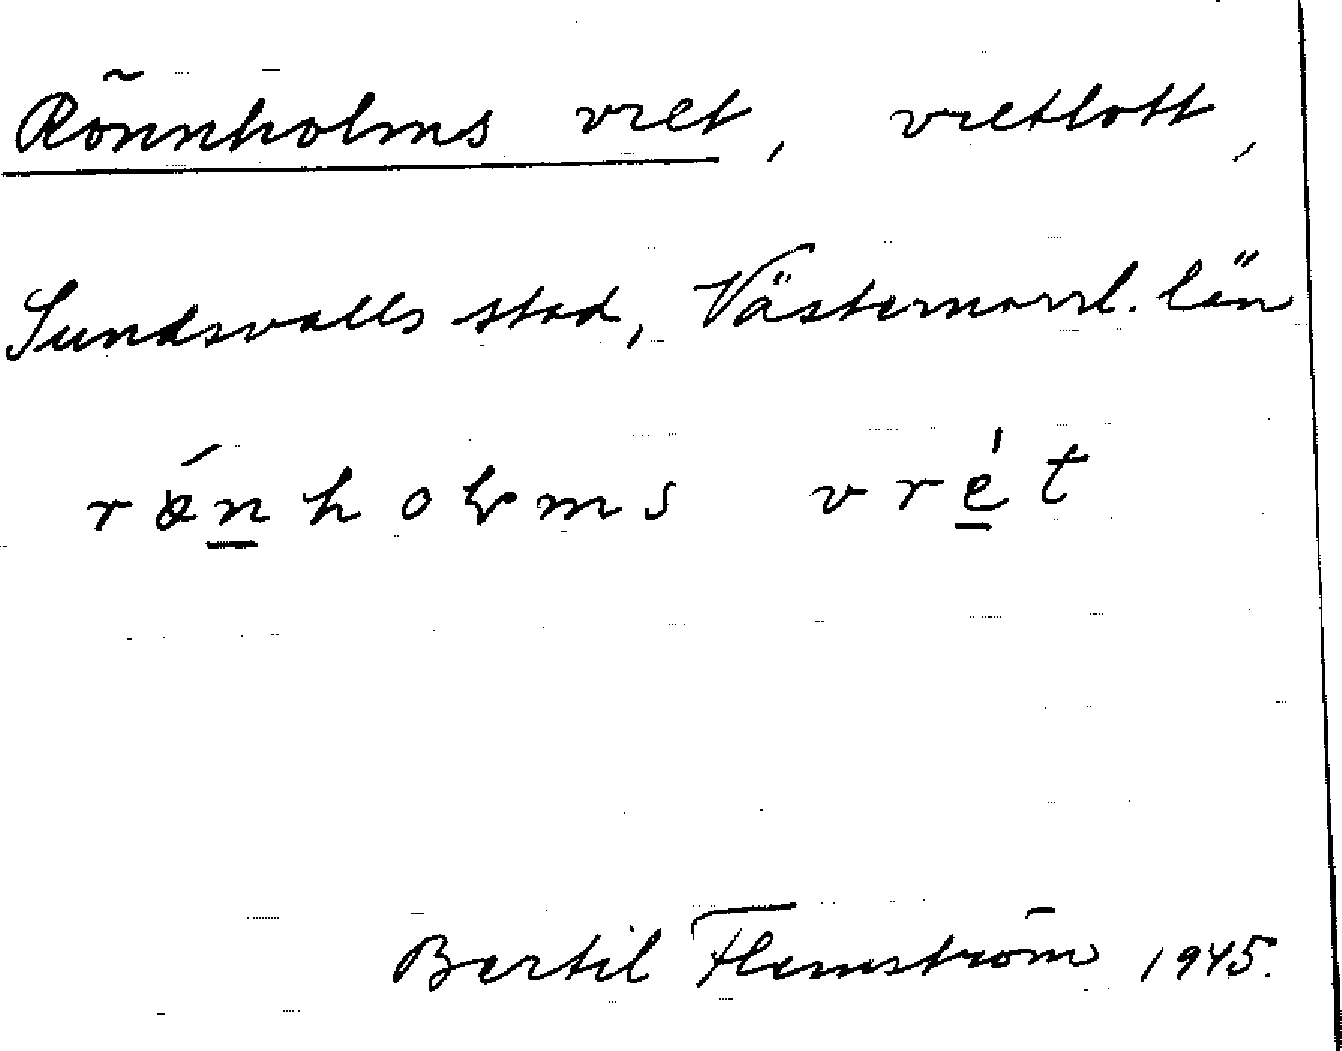 Rönnholms vret, vretlott,
Sundsvalls stad, Västernorrl. län
rǿnholms vrét
Bertil Flemström 1945.